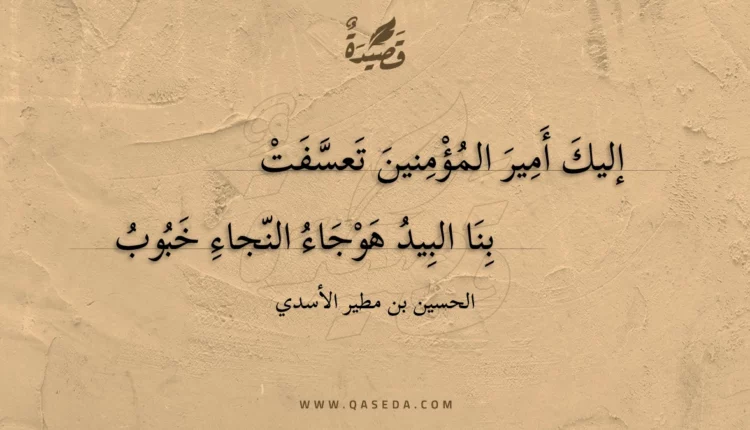 قَصِيدَةٌ
إليكَ أَمِيرَ المُؤْمِنينَ تَعسَّفَتْ
بِنَا البِيدُ هَوْجَاءُ النّجاءِ خَبُوبُ
الحسين بن مطير الأسدي
WWW.QASEDA.COM